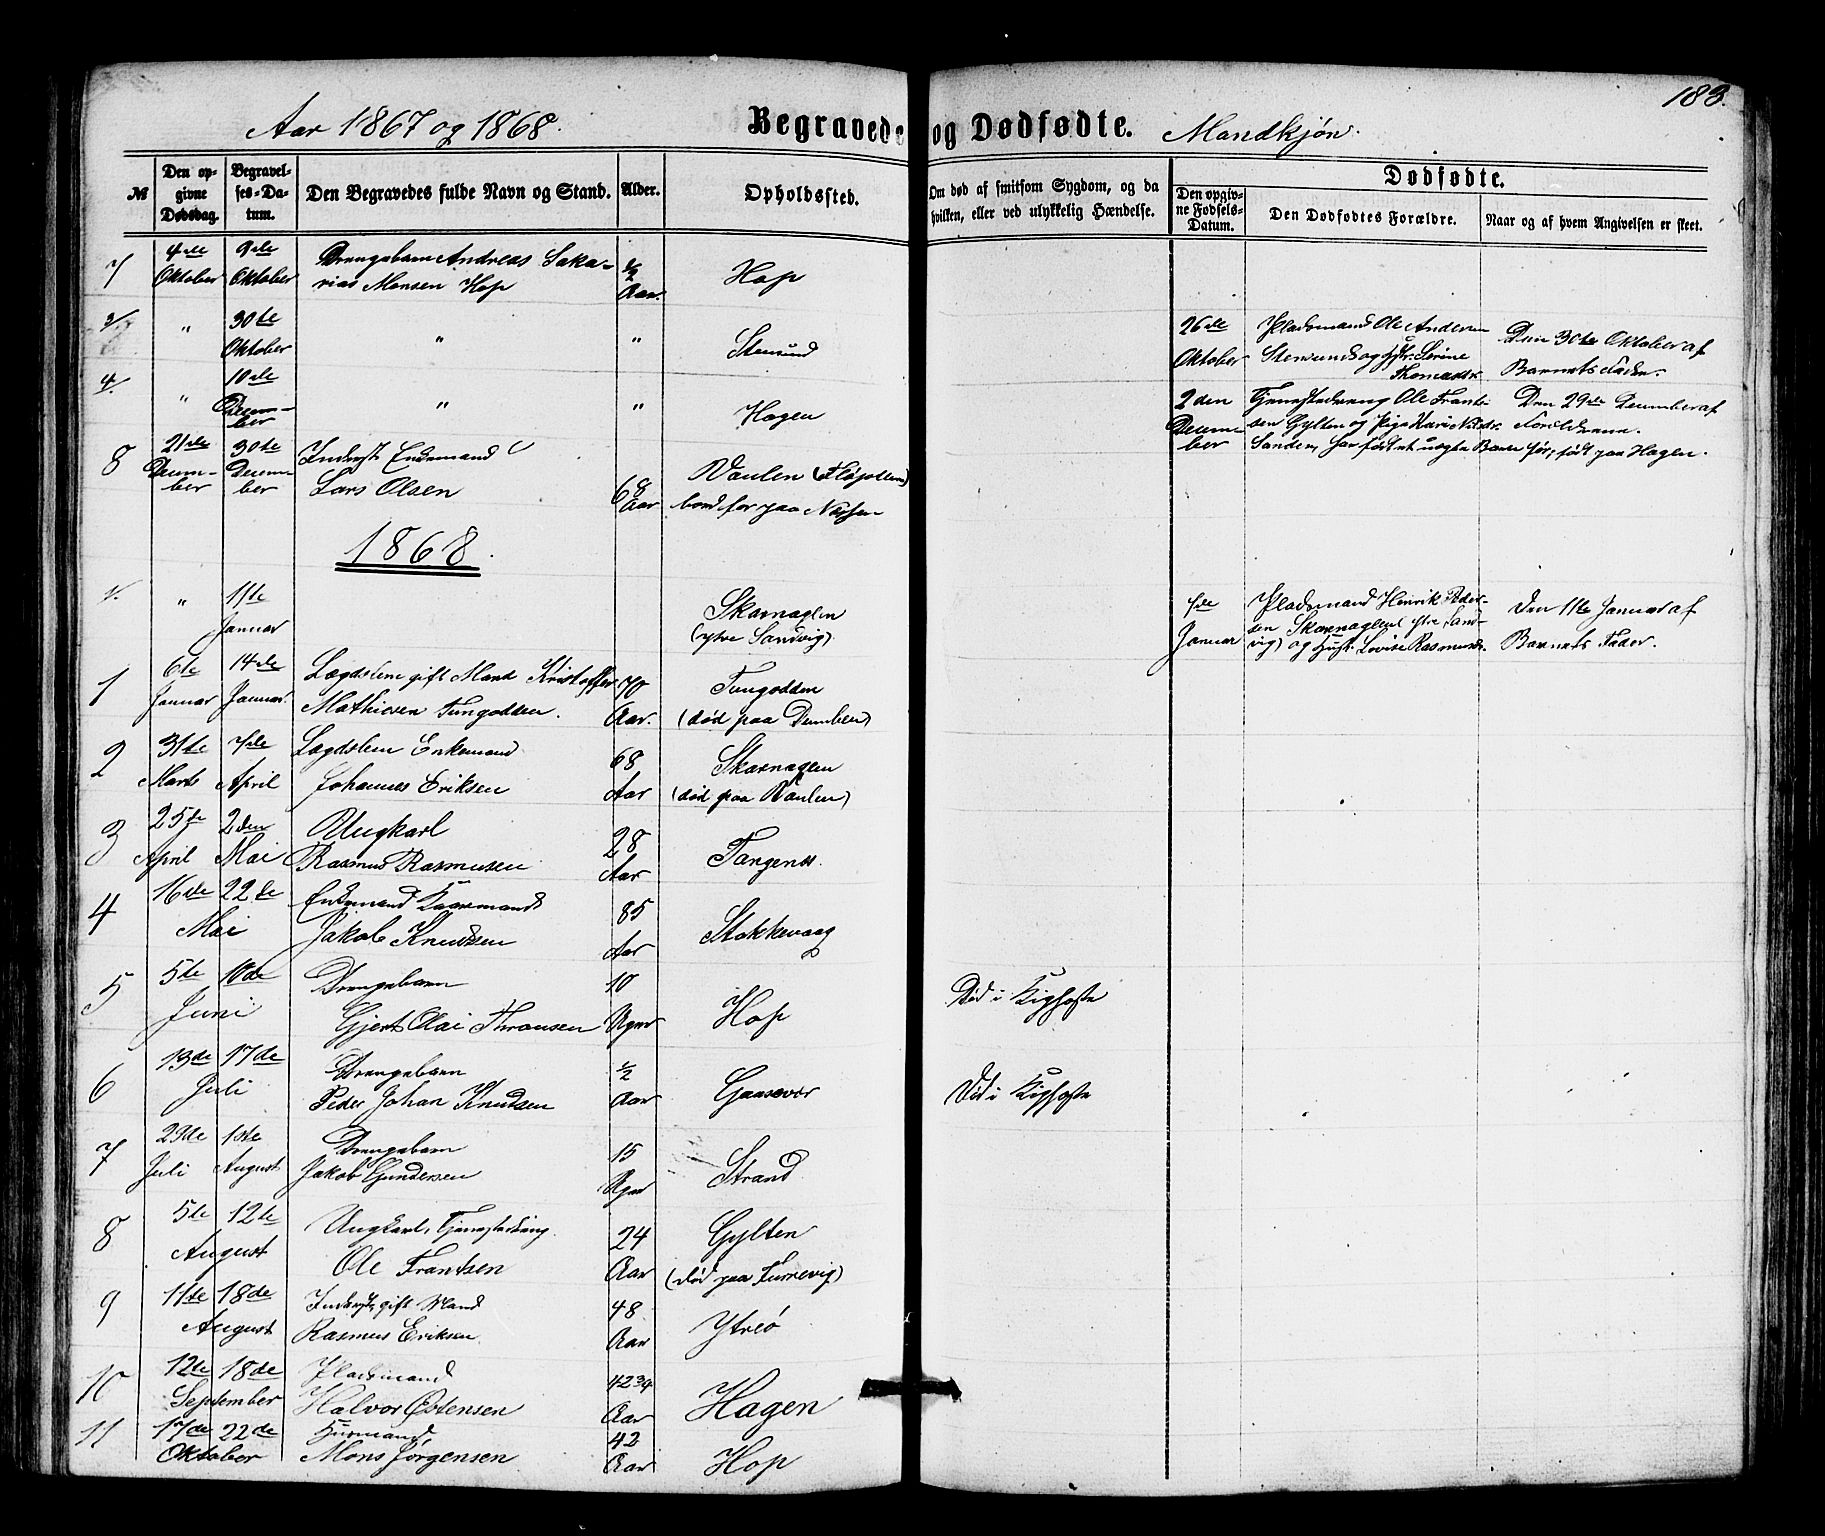 183.
Aar 1867 og 1868.
Begravede og Dødfødte.
Mandkjøn.
№
Den opgivne Dødsdag.
Begravelses-Datum.
Den Begravedes fulde Navn og Stand.
Alder.
Opholdssted.
Om død af smitsom Sygdom, og da hvilken, eller ved ulykkelig Hændelse.
Dødfødte.
Den opgivne Fødsels-Datum.
Den Dødfødtes Forældre.
Naar og af hvem Angivelsen er skeet.
7 4de Oktober 9de Oktober Drengebarn Andreas Sakarias Monsen Hop ½ Aar. Hop
3/ " 30te Oktober " " Stensund 26de Oktober Pladsmand Ole Andersen Stensund og Hustr. Serine Thomasdr. Den 30te Oktober af Barnets Fader.
4/. " 10de Decemember " " Hagen 2den December Tjenestedreng Ole Frantsen Gylten og Pige Kari Nilsdr. Sanden, har født et uægte Barn før, født paa Hagen. Den 29de December af Forældrene.
8 21de December 30te December Inderst, Enkemand Lars Olsen 68 Aar Vaulen (Fløjolten) boed før paa Næssen
1868.
1/. " 11te Januar Skarnaglen (ytre Sandvig) 7de Januar Pladsmand Henrik Pedersen Skarnaglen (ytre Sandvig) og Hust. Lovise Rasmusdr. Den 11te Januar af Barnets Fader.
1 6te Januar 14de Januar. Lægdslem gift Mand Kristoffer Mathiesen Tungodden. 70 Aar. Tungodden (død paa Dumben)
2 31te Marts 7de April Lægdslem Enkemand Johannes Eriksen 68 Aar Skarnaglen (død paa Vaulen)
3 25de April 2den Mai Ungkarl Rasmus Rasmusen 28 Aar Tangenes.
4 16de 22de Mai Enkemand Kaarmand Jakob Knudsen 85 Aar Stokkevaag
5 5te 10de Juni Drengebarn Gjert Olai Thronsen 10 Uger Hop Død i Kighoste
6 13de 17de Juli Drengebarn Peder Johan Knudsen ½ Aar Gaasevær Død i Kighoste
7 29de Juli 1ste August Drengebarn Jakob Gundersen 15 Uger Strand
8 5te 12te August Ungkarl, Tjenestedreng Ole Frantsen 24 Aar Gylten (død paa Furrevig)
9 11te 18de August Inderst, gift Mand Rasmus Eriksen 48 Aar Ytreø
10 12te 18de September Pladsmand Halvor Østensen 42¾ Aar Hagen
11 17de 22de Oktober Husmand, Mons Jørgensen 42 Aar Hop